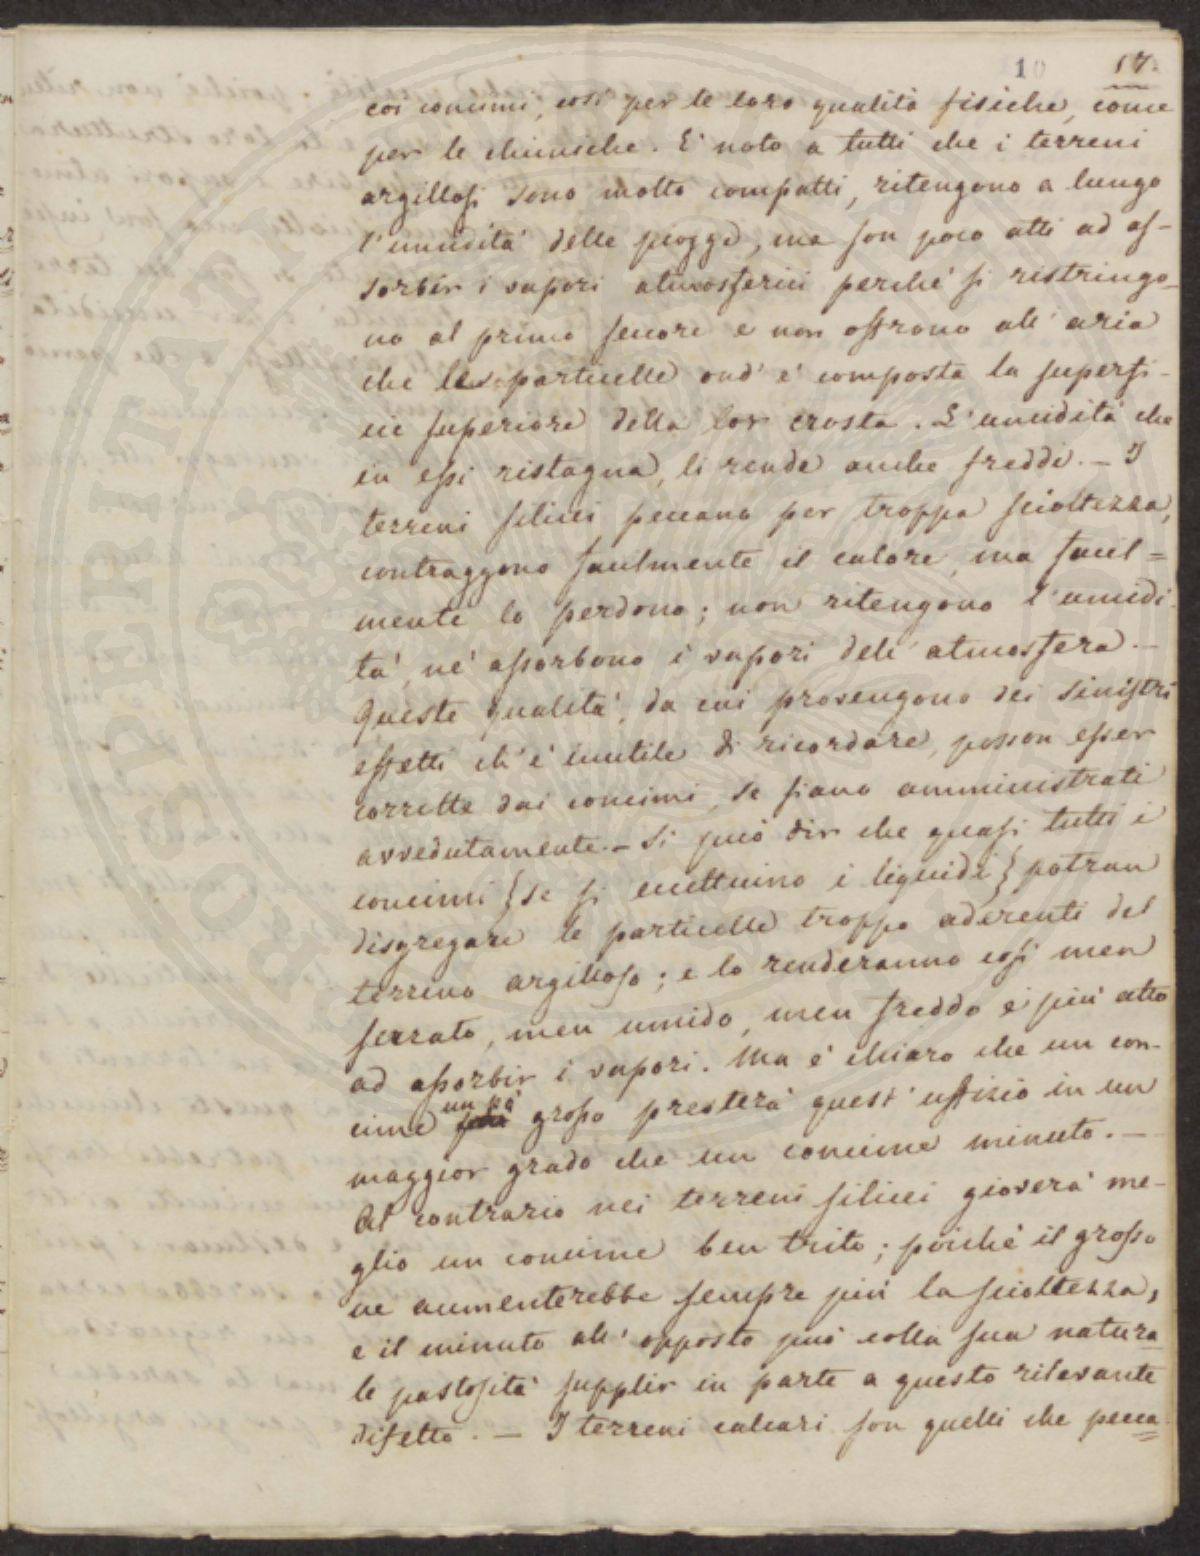 10 17.
coi concimi, così per le loro qualità fisiche, come
per le chimiche. E' noto a tutti che i terreni
argillosi sono molto compatti, ritengono a lungo
l'umidità delle piogge, ma son poco atti ad as-
sorbir i vapori atmosferici perchè si ristringo-
no al primo secore e non offrono all'aria
che le particelle ond'è composta la superfi-
cie superiore della lor crosta. L'umidità che
in essi ristagna, li rende anche freddi. — I
terreni silicei peccano per troppa scioltezza,
contraggono facilmente il calore, ma facil=
mente lo perdono; non ritengono l'umidi-
tà, nè assorbono i vapori dell'atmosfera. —
Queste qualità, da cui provengono dei sinistri
effetti ch'è inutile di ricordare, posson esser
corrette dai concimi, se siano amministrati
avvedutamente. — Si può dir che quasi tutti i
concimi {se si eccettuino i liquidi} potran
disgregare le particelle troppo aderenti del
terreno argilloso; e lo renderanno così men
serrato, men umido, men freddo e più atto
ad assorbir i vapori. Ma è chiaro che un con-
cime un pò grosso presterà quest'uffizio in un
maggior grado che un concime minuto. —
Al contrario nei terreni silicei gioverà me-
glio un concime ben trito; poichè il grosso
ne aumenterebbe sempre più la scioltezza,
e il minuto all'opposto può colla sua natura-
le pastosità supplir in parte a questo rilevante
difetto. — I terreni calcari son quelli che pecca=